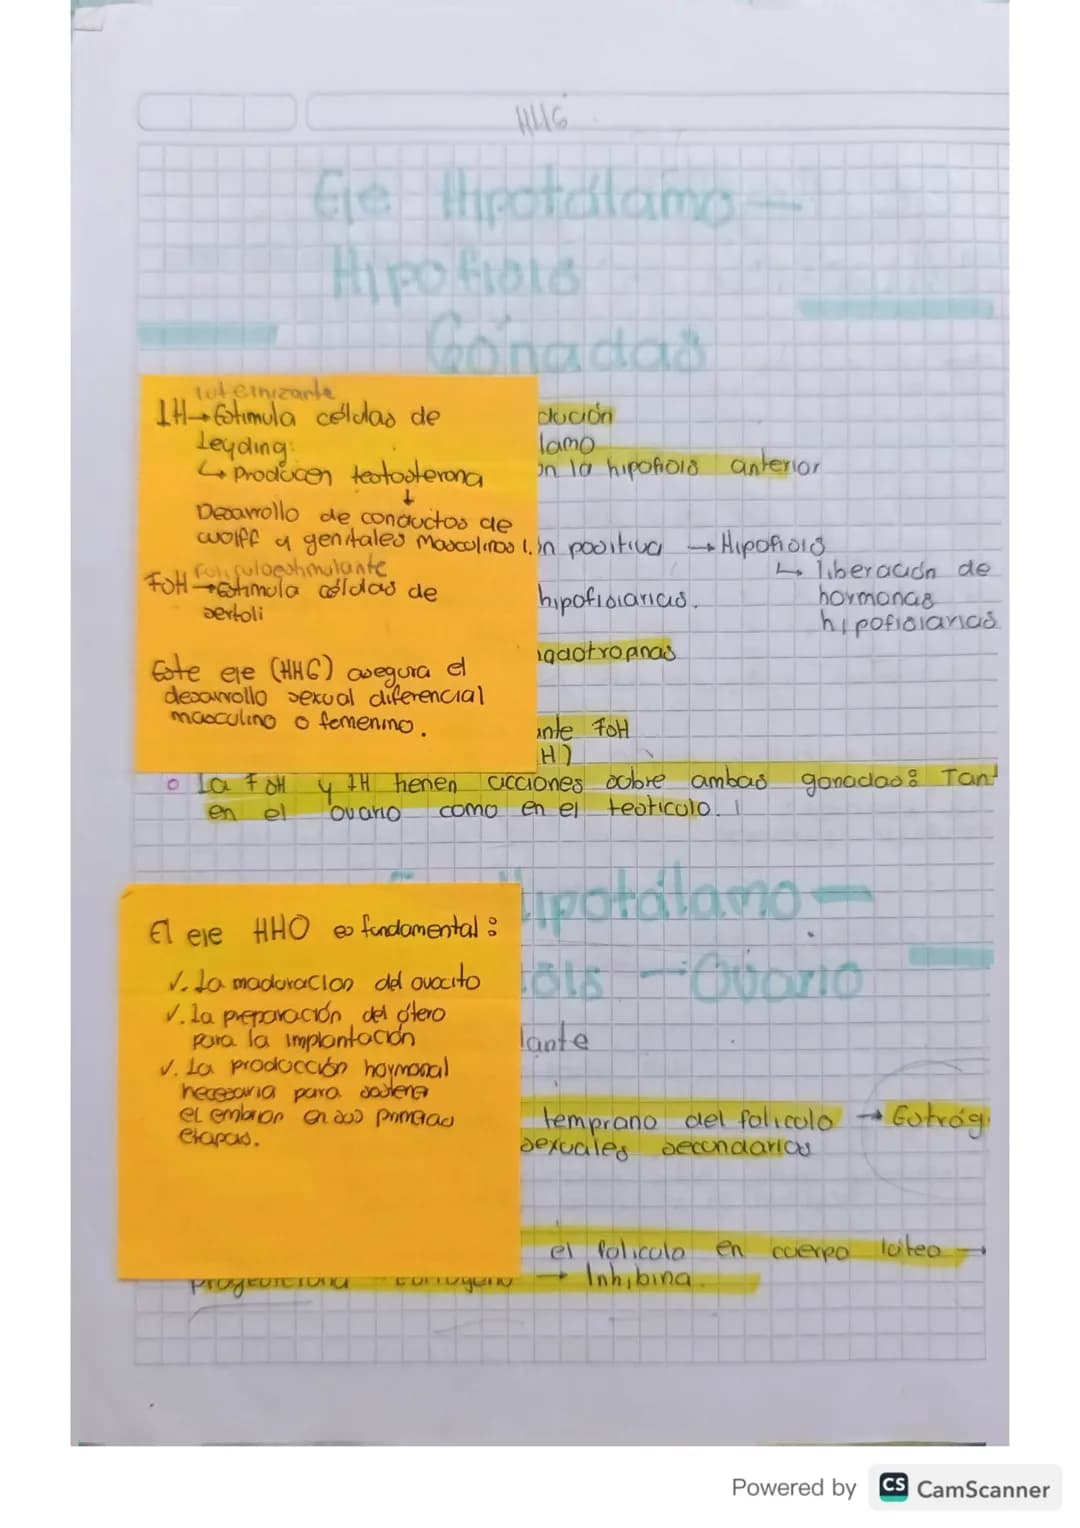 HHG
Eje Hipotálamo –
Hipofisis
Gónadas
luteinizante
LH → Estimula células de
Leyding:
↳ Producen testosterona
↓
Desarrollo de conductos de
wolff y genitales masculinos
foliculoestimulante
FSH → Estimula células de
sertoli
Este eje (HHG) asegura el
desarrollo sexual diferencial
masculino o femenino.
ducción
lamo
on la hipofisis anterior
ón positiva → Hipofisis
↳ liberación de
hormonas
hipofisiarias
hipofisiarias.
nante FSH
H)
o La FSH y LH tienen acciones sobre ambas gonadas: Tan
en el ovario como en el testiculo.
Hipotálamo –
– Ovario
El eje HHO es fundamental:
✓. La maduracion del ovocito
✓. La preparación del útero
para la implantación
✓. La producción hormonal
necesaria para sostener
el embrion en sus primeras
etapas.
lante
temprano del foliculo → Estróg
sexuales secundarios
el foliculo en cuerpo lúteo →
progesterona – Estrogeno → Inhibina.
Powered by CS CamScanner